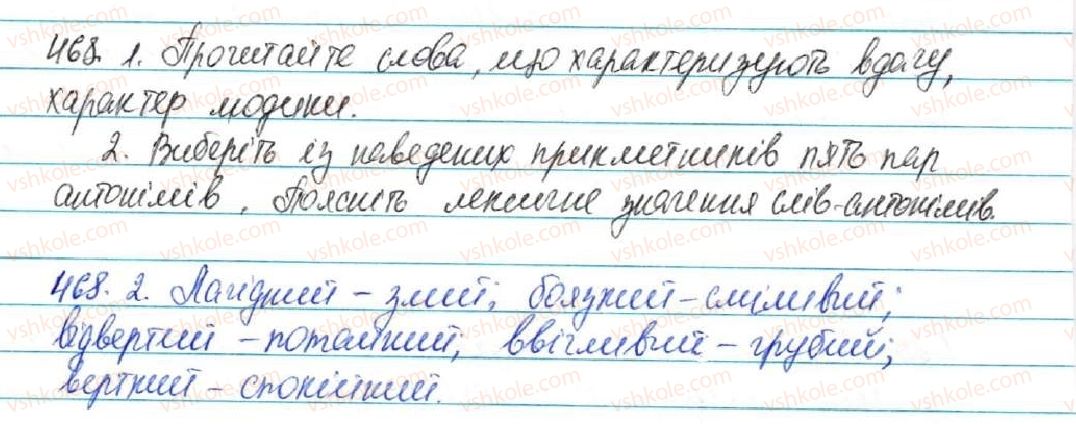 468. 1. Прочитайте слова, що характеризують вдачу,
характер людини.
2. Виберіть із наведених прикметників пять пар
антонімів. Поясніть лексичне значення слів-антонімів.
468. 2. Лагідний - злий; боязкий - сміливий;
відвертий - потайний; ввічливий - грубий;
верткий - спокійний.